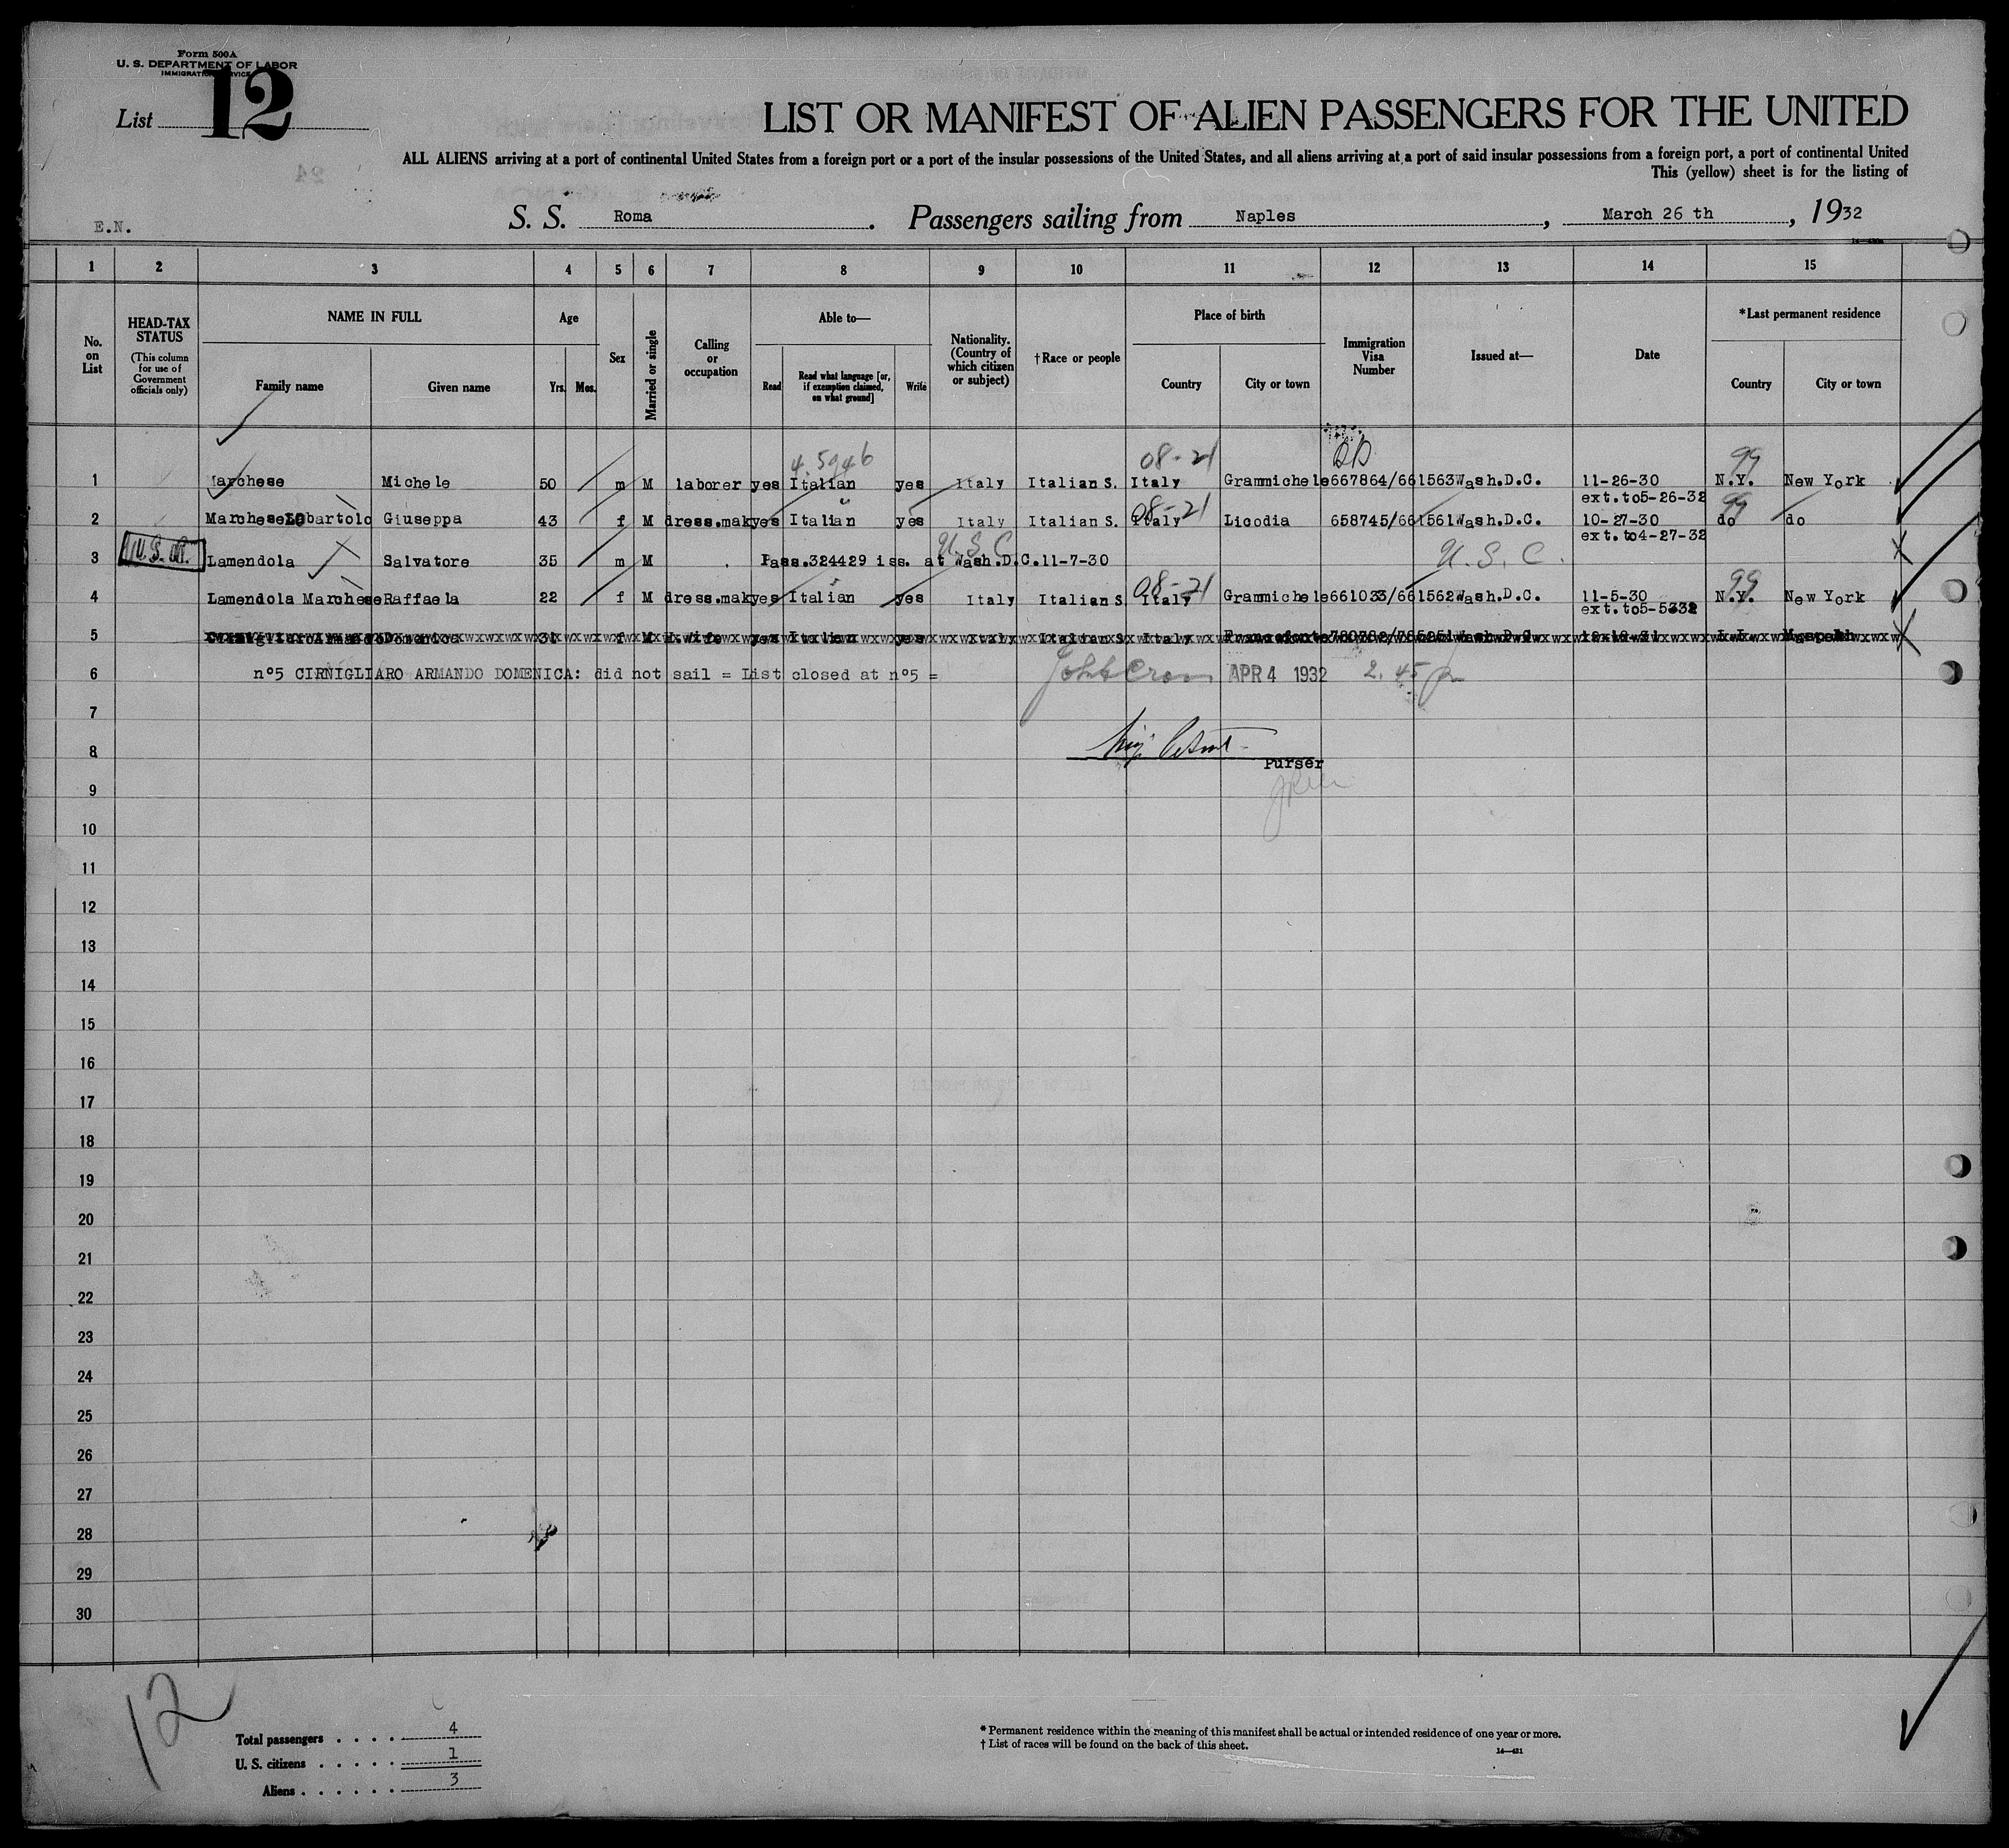 Form 500 A
U. S. DEPARTMENT OF LABOR
IMMIGRATION SERVICE
List 12
LIST OR MANIFEST OF ALIEN PASSENGERS FOR THE UNITED
ALL ALIENS arriving at a port of continental United States from a foreign port or a port of the insular possessions of the United States, and all aliens arriving at a port of said insular possessions from a foreign port, a port of continental United
This (yellow) sheet is for the listing of
E.N. S. S. Roma. Passengers sailing from Naples, March 26 th, 1932
1 2 3 4 5 6 7 8 9 10 11 12 13 14 15
No. on List
HEAD-TAX STATUS
(This column for use of Government officials only)
NAME IN FULL
Family name Given name
Age
Yrs. Mos.
Sex
Married or single
Calling or occupation
Able to—
Read
Read what language [or, if exemption claimed, on what ground]
Write
Nationality. (Country of which citizen or subject)
†Race or people
Place of birth
Country City or town
Immigration Visa Number
Issued at—
Date
*Last permanent residence
Country City or town
4.5946 08-21 99
1 Marchese Michele 50 m M laborer yes Italian yes Italy Italian S. Italy Grammichele 667864/661563 Wash.D.C. 11-26-30 N.Y. New York
ext.to5-26-32
08-21 99
2 Marchese Lobartolo Giuseppa 43 f M dress.mak yes Italian yes Italy Italian S. Italy Licodia 658745/661561 Wash.D.C. 10-27-30 do do
ext.to4-27-32
U.S.C.
3 Lamendola Salvatore 35 m M Pass.324429 iss. at Wash.D.C.11-7-30 U.S.C.
08-21 99
4 Lamendola Marchese Raffaela 22 f M dress.mak yes Italian yes Italy Italian S Italy Grammichele 661033/661562 Wash.D.C. 11-5-30 N.Y. New York
ext.to5-5-32
5 Domenica 31 f M H.wife yes Italian yes Italy Italian S. Italy Wash.D.C. Maspeth
6 n°5 CIRNIGLIARO ARMANDO DOMENICA: did not sail = List closed at n°5 = APR 4 1932 2.45 pm
7
8
Purser
9
10
11
12
13
14
15
16
17
18
19
20
21
22
23
24
25
26
27
28
29
30
12
Total passengers . . . . 4
U. S. citizens . . . . . 1
Aliens . . . . . . 3
* Permanent residence within the meaning of this manifest shall be actual or intended residence of one year or more.
† List of races will be found on the back of this sheet.
14—431